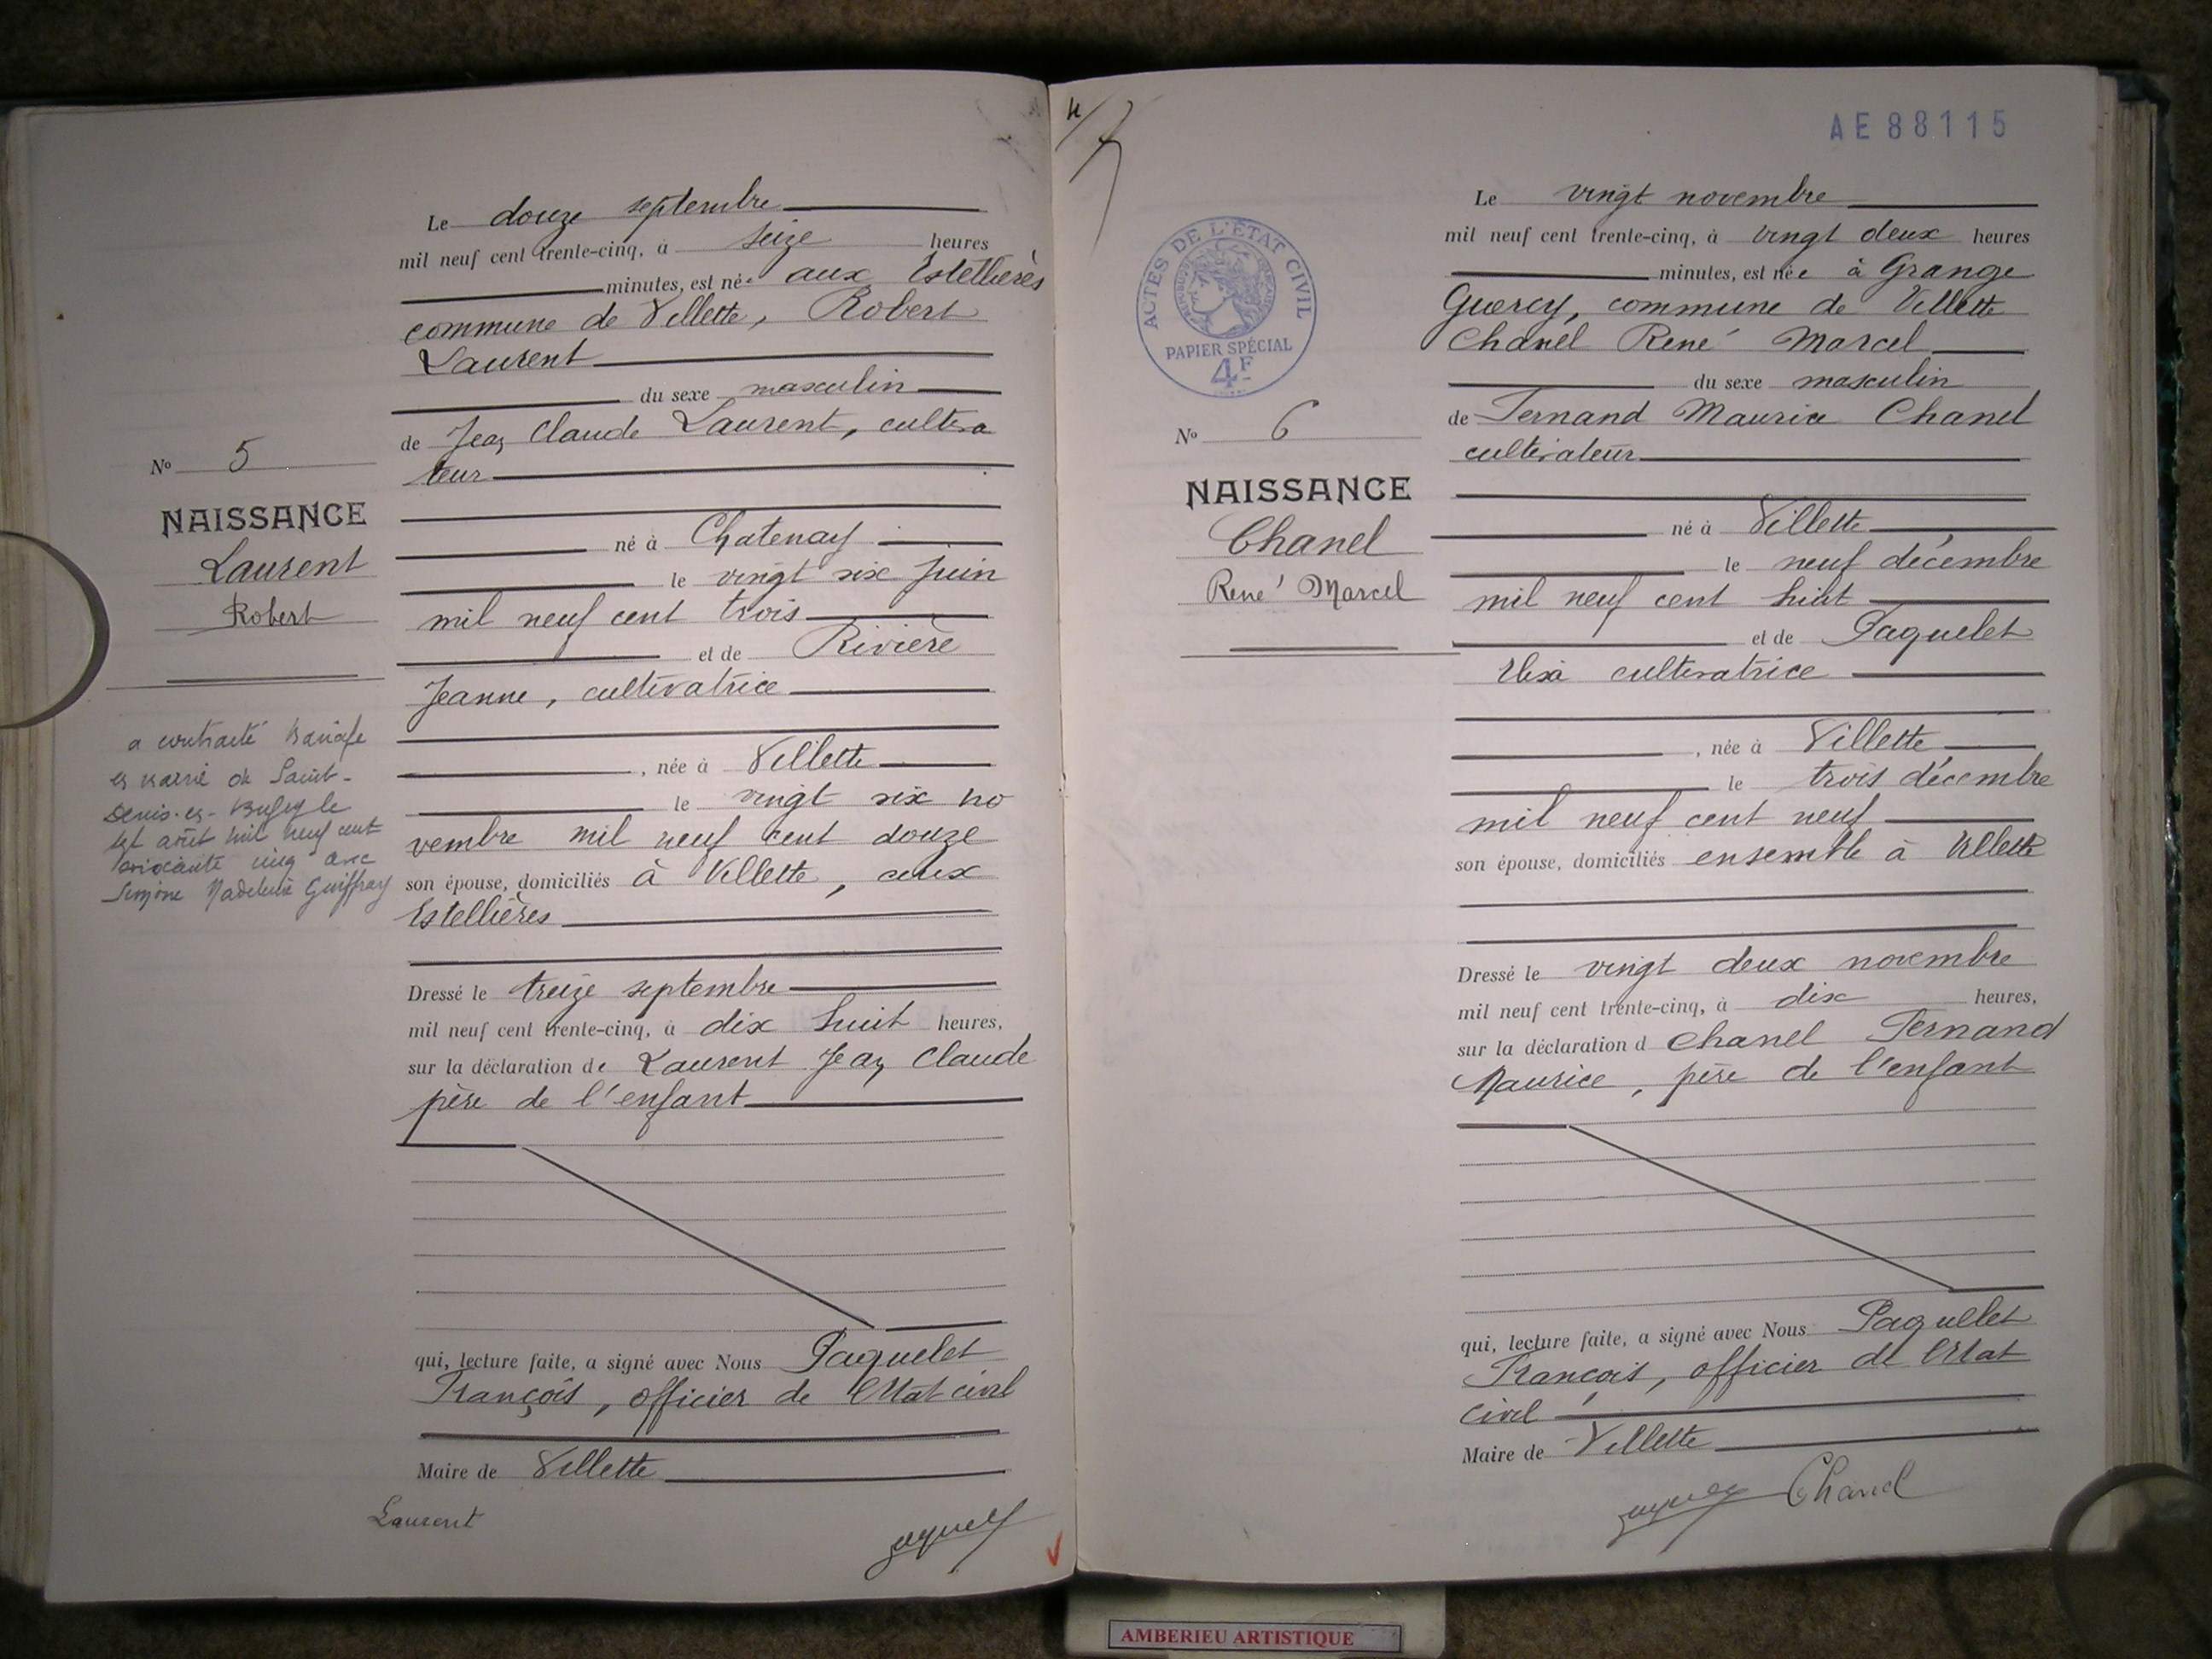 Le douze septembre
mil neuf cent trente-cinq, à seize heures
minutes, est né aux Estellières
commune de Villette, Robert
Laurent
du sexe masculin
de Jean Claude Laurent, cultiva
teur
né à Chatenay
le vingt six juin
mil neuf cent trois
et de Rivière
Jeanne, cultivatrice
, née à Villette
le vingt six no
vembre mil neuf cent douze
son épouse, domiciliés à Villette, aux
Estellières
Dressé le treize septembre
mil neuf cent trente-cinq, à dix huit heures,
sur la déclaration de Laurent Jean Claude
père de l'enfant
qui, lecture faite, a signé avec Nous Paquelet
François, officier de l'état civil
Maire de Villette
Laurent
No 5
NAISSANCE
Laurent
Robert
a contracté mariage
en mairie de Saint-
Denis-en-Bugey le
août mil neuf cent
soixante cinq avec
Simone Madeleine Guiffray
AE88115
ACTES DE L'ÉTAT CIVIL
PAPIER SPÉCIAL
4F
No 6
NAISSANCE
Chanel
René Marcel
Le vingt novembre
mil neuf cent trente-cinq, à vingt deux heures
minutes, est née à Grange
Guercy, commune de Villette
Chanel René Marcel
du sexe masculin
de Fernand Maurice Chanel
cultivateur
né à Villette
le neuf décembre
mil neuf cent huit
et de Paquelet
Elisa cultivatrice
, née à Villette
le trois décembre
mil neuf cent neuf
son épouse, domiciliés ensemble à Villette
Dressé le vingt deux novembre
mil neuf cent trente-cinq, à dix heures,
sur la déclaration d Chanel Fernand
Maurice, père de l'enfant
qui, lecture faite, a signé avec Nous Paquelet
François, officier de l'état
civil
Maire de Villette
Chanel
AMBERIEU ARTISTIQUE